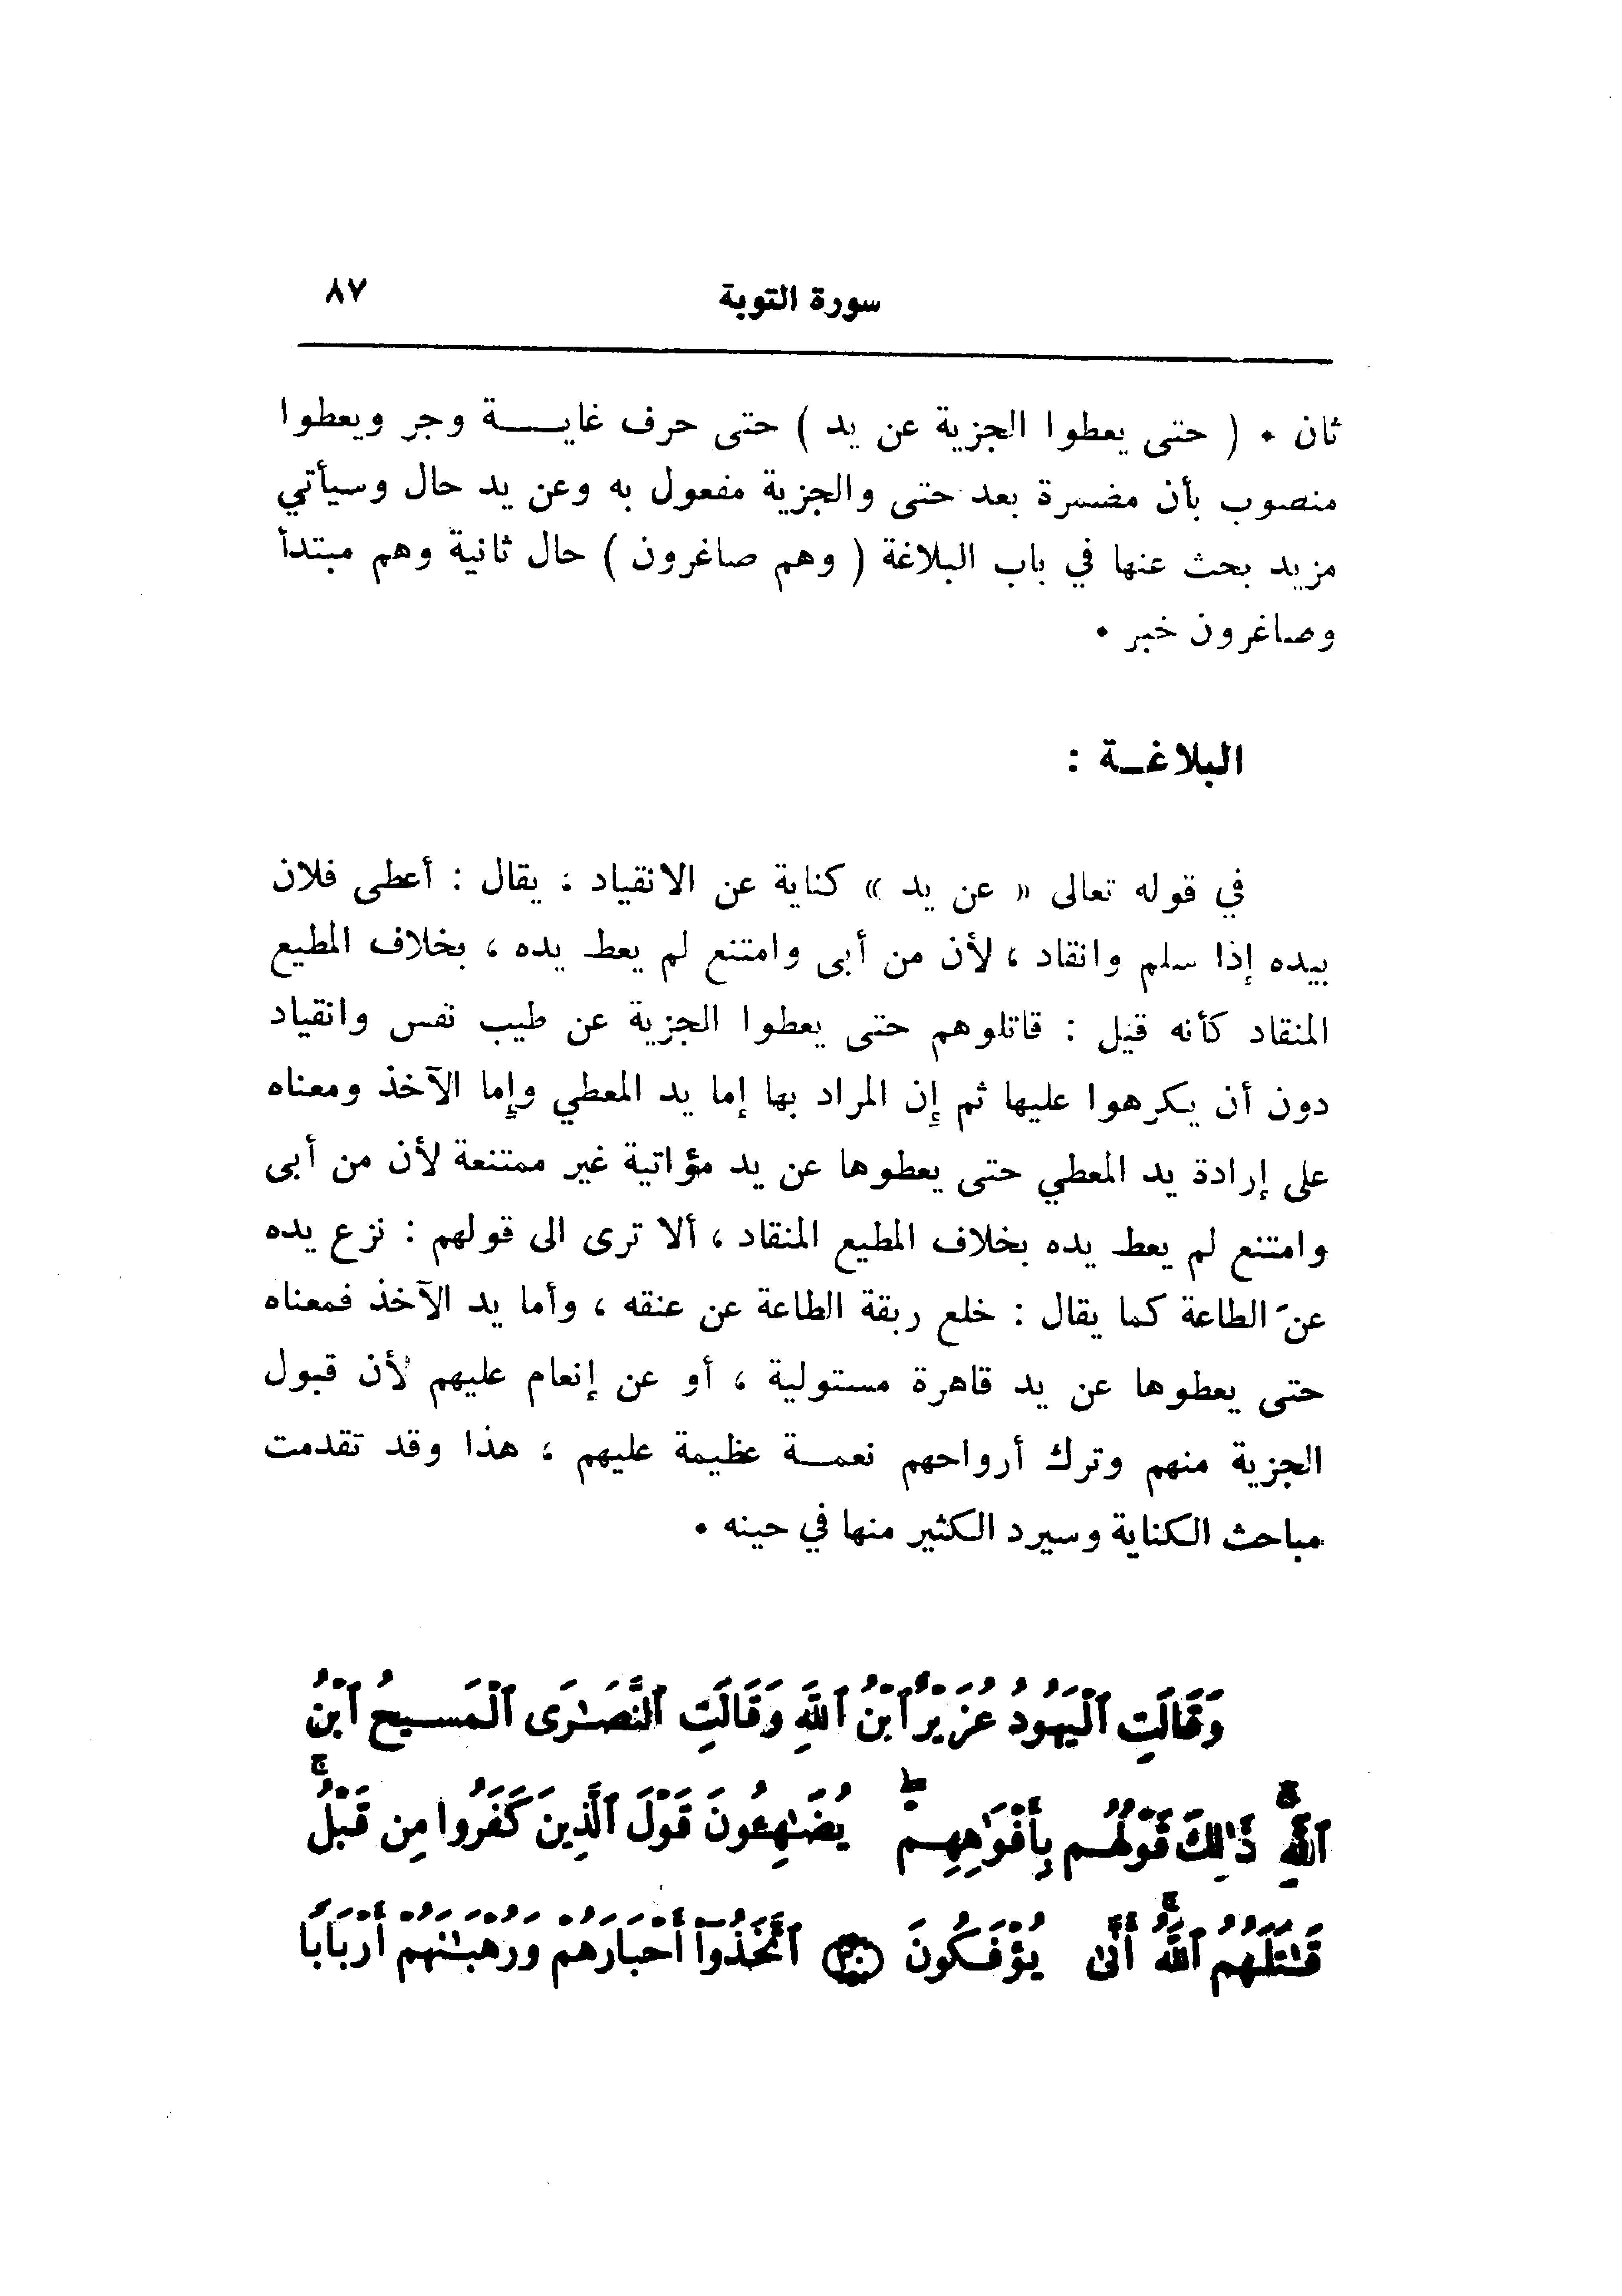 سورة التوبة ٨٧
ثان . ( حتى يعطوا الجزية عن يد ) حتى حرف غايـــة وجر ويعطوا
منصوب بأن مضمرة بعد حتى والجزية مفعول به وعن يد حال وسيأتي
مزيد بحث عنها في باب البلاغة ( وهم صاغرون ) حال ثانية وهم مبتدأ
وصاغرون خبر .
البلاغـة :
في قوله تعالى « عن يد » كناية عن الانقياد ؛ يقال : أعطى فلان
بيده إذا سلم وانقاد ، لأن من أبى وامتنع لم يعط يده ، بخلاف المطيع
المنقاد كأنه قيل : قاتلوهم حتى يعطوا الجزية عن طيب نفس وانقياد
دون أن يكرهوا عليها ثم إن المراد بها إما يد المعطي وإما الآخذ ومعناه
على إرادة يد المعطي حتى يعطوها عن يد مؤاتية غير ممتنعة لأن من أبى
وامتنع لم يعط يده بخلاف المطيع المنقاد ، ألا ترى الى قولهم : نزع يده
عن الطاعة كما يقال : خلع ربقة الطاعة عن عنقه ، وأما يد الآخذ فمعناه
حتى يعطوها عن يد قاهرة مستولية ، أو عن إنعام عليهم لأن قبول
الجزية منهم وترك أرواحهم نعمـة عظيمة عليهم ، هذا وقد تقدمت
مباحث الكناية وسيرد الكثير منها في حينه .
وَقَالَتِ ٱلْيَهُودُ عُزَيْرٌ ٱبْنُ ٱللَّهِ وَقَالَتِ ٱلنَّصَـٰرَى ٱلْمَسِيحُ ٱبْنُ
ٱللَّهِ ۖ ذَٰلِكَ قَوْلُهُم بِأَفْوَٰهِهِمْ ۖ يُضَـٰهِـُٔونَ قَوْلَ ٱلَّذِينَ كَفَرُوا مِن قَبْلُ ۚ
قَـٰتَلَهُمُ ٱللَّهُ ۚ أَنَّىٰ يُؤْفَكُونَ ﴿٣٠﴾ ٱتَّخَذُوٓا أَحْبَارَهُمْ وَرُهْبَـٰنَهُمْ أَرْبَابًا